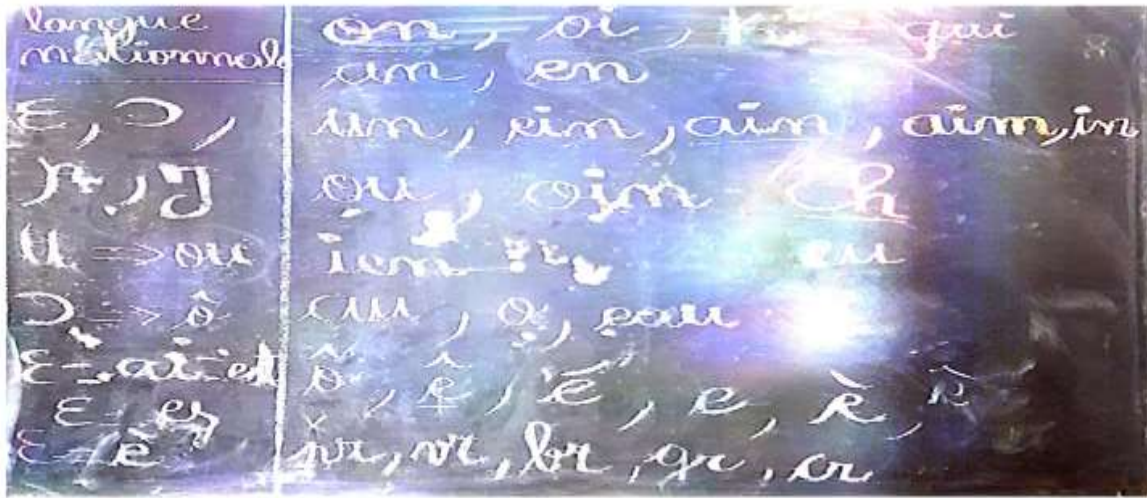 langue
nationnale
ɛ, ɔ,
ɲ, ŋ
u => ou
ɔ => ô
ɛ = ai = et
ɛ = es
ɛ = è
on, oi, ki = qui
an, en
un, ein, ain, aim, in
ou, oin Ch
ien eu
au, o, eau
ô, ê, é, e, è
pr, vr, br, gr, cr